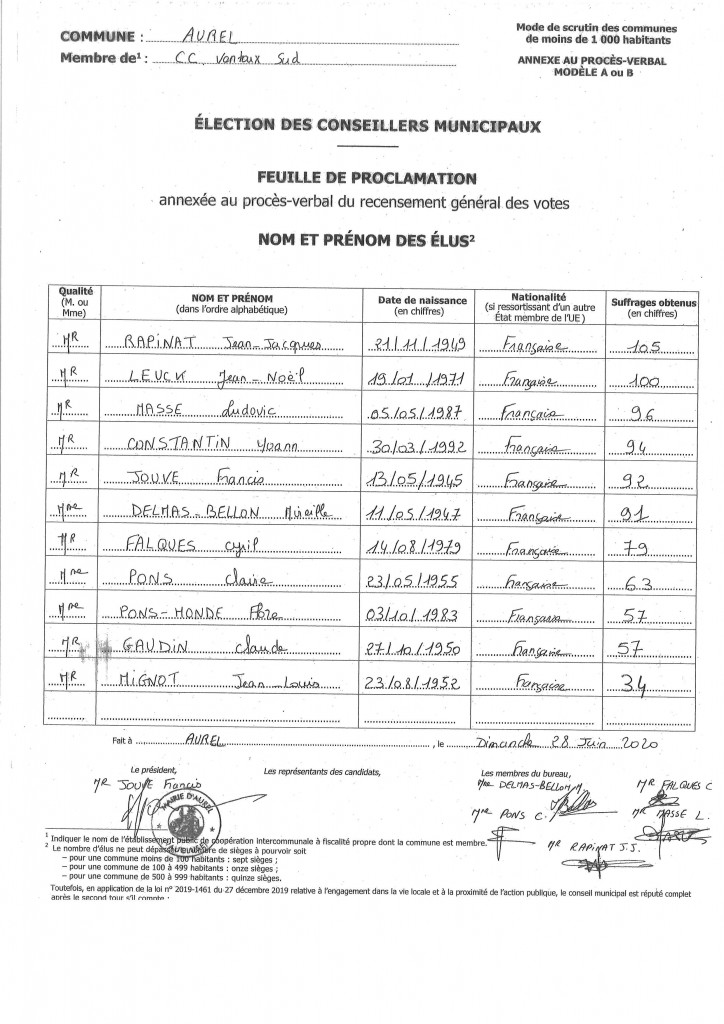 COMMUNE : AUREL
Membre de¹ : C.C. Ventoux Sud
Mode de scrutin des communes
de moins de 1 000 habitants
ANNEXE AU PROCÈS-VERBAL
MODÈLE A ou B
ÉLECTION DES CONSEILLERS MUNICIPAUX
FEUILLE DE PROCLAMATION
annexée au procès-verbal du recensement général des votes
NOM ET PRÉNOM DES ÉLUS²
Qualité (M. ou Mme) NOM ET PRÉNOM (dans l'ordre alphabétique) Date de naissance (en chiffres) Nationalité (si ressortissant d'un autre État membre de l'UE) Suffrages obtenus (en chiffres)
MR RAPINAT Jean-Jacques 21/11/1949 Française 105
MR LEUCK Jean-Noël 19/01/1971 Française 100
MR MASSE Ludovic 05/05/1987 Française 96
MR CONSTANTIN Yoann 30/03/1992 Française 94
MR JOUVE Francis 13/05/1945 Française 92
Mme DELMAS-BELLON Mireille 11/05/1947 Française 91
MR FALQUES Cyril 14/08/1979 Française 79
Mme PONS Claire 23/05/1955 Française 63
Mme PONS-MONDE Flore 03/10/1983 Française 57
MR GAUDIN Claude 27/10/1950 Française 57
MR MIGNOT Jean-Louis 23/08/1952 Française 34
Fait à AUREL, le Dimanche 28 Juin 2020
Le président, Les représentants des candidats, Les membres du bureau,
MR JOUVE Francis Mme DELMAS-BELLON M. MR FALQUES C
Mme PONS C. MR MASSE L.
MR RAPINAT J.J.
MAIRIE D'AUREL
¹ Indiquer le nom de l'établissement public de coopération intercommunale à fiscalité propre dont la commune est membre.
² Le nombre d'élus ne peut dépasser le nombre de sièges à pourvoir soit
– pour une commune moins de 100 habitants : sept sièges ;
– pour une commune de 100 à 499 habitants : onze sièges ;
– pour une commune de 500 à 999 habitants : quinze sièges.
Toutefois, en application de la loi n° 2019-1461 du 27 décembre 2019 relative à l'engagement dans la vie locale et à la proximité de l'action publique, le conseil municipal est réputé complet
après le second tour s'il compte :